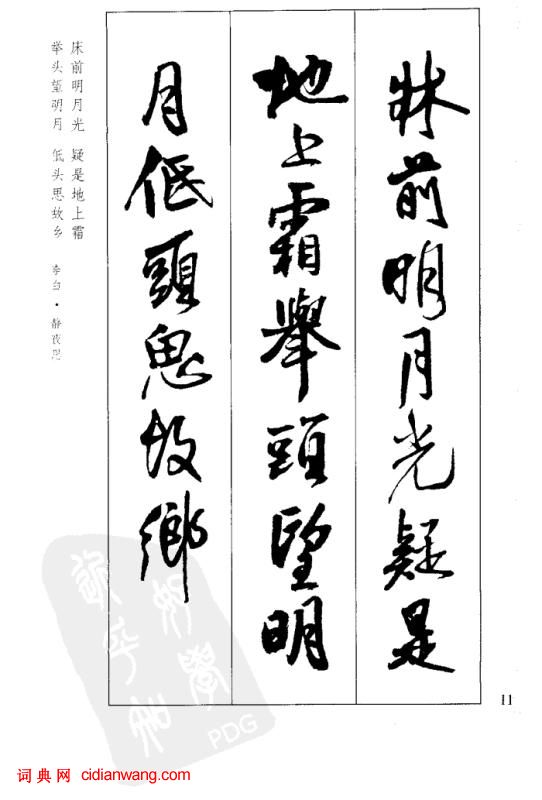 牀前明月光疑是
地上霜舉頭望明
月低頭思故鄉
床前明月光 疑是地上霜
举头望明月 低头思故乡 李白·静夜思
11
PDG
词典网 cidianwang.com